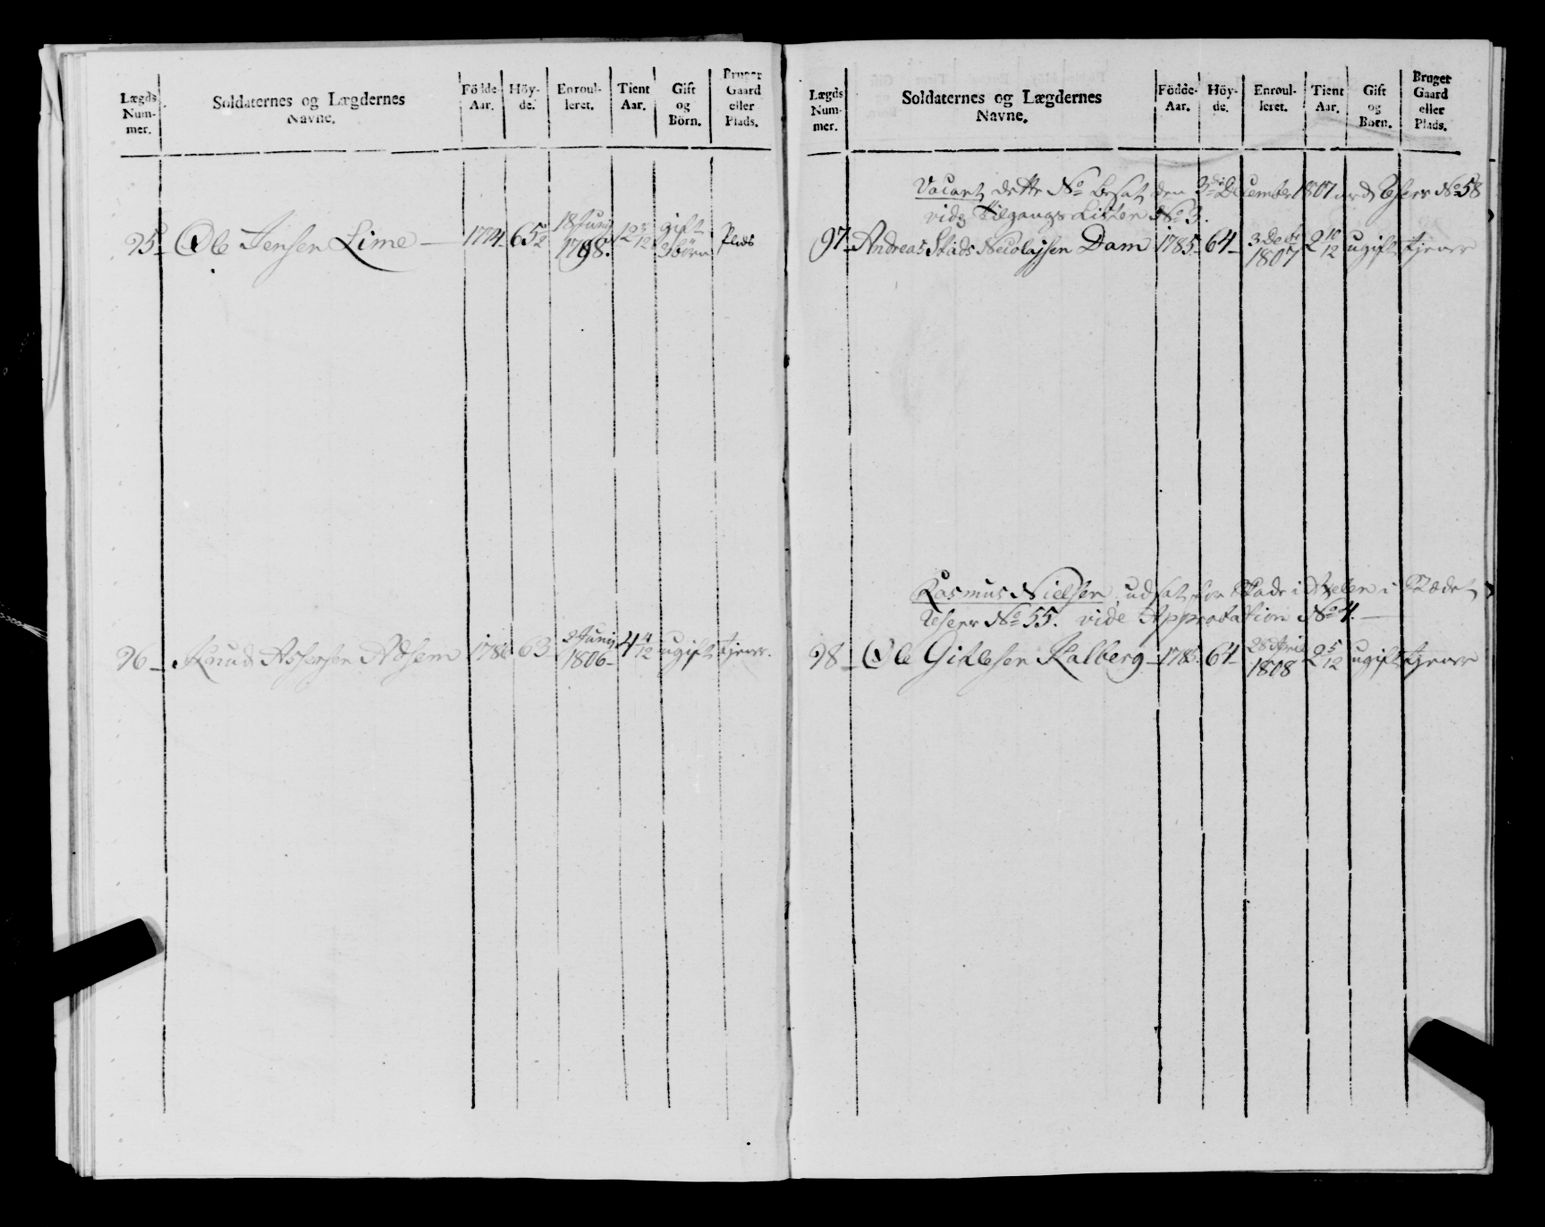 Lægds Num- mer.
Soldaternes og Lægdernes Navne.
Födde- Aar.
Höy- de.
Enroul- leret.
Tient Aar.
Gift og Börn.
Bruger Gaard eller Plads.
95 Ole Jensen Lime 1774 65 1/2 18 Junÿ 1798. 12 3/12 gift 3 börn Plads
96 Knud 1786 63 2 Junÿ 1806 4 4/12 ugift tjener.
Lægds Num- mer.
Soldaternes og Lægdernes Navne.
Födde- Aar.
Höy- de.
Enroul- leret.
Tient Aar.
Gift og Börn.
Bruger Gaard eller Plads.
Vacant, dette No besat den 3de December 1807 med Reserv No 58
vide Tilgangs Listen No 3.
97 Andreas Stads Nicolajsen Dam 1785 64 3 Decbr 1807 2 10/12 ugift tjener
Rasmus Nielsen, udsat for Skade i
Reserv No 55. vide Approbation No 4.
98 Ole Gitlesen Kalberg 1785 64 28 April 1808 2 5/12 ugift tjener